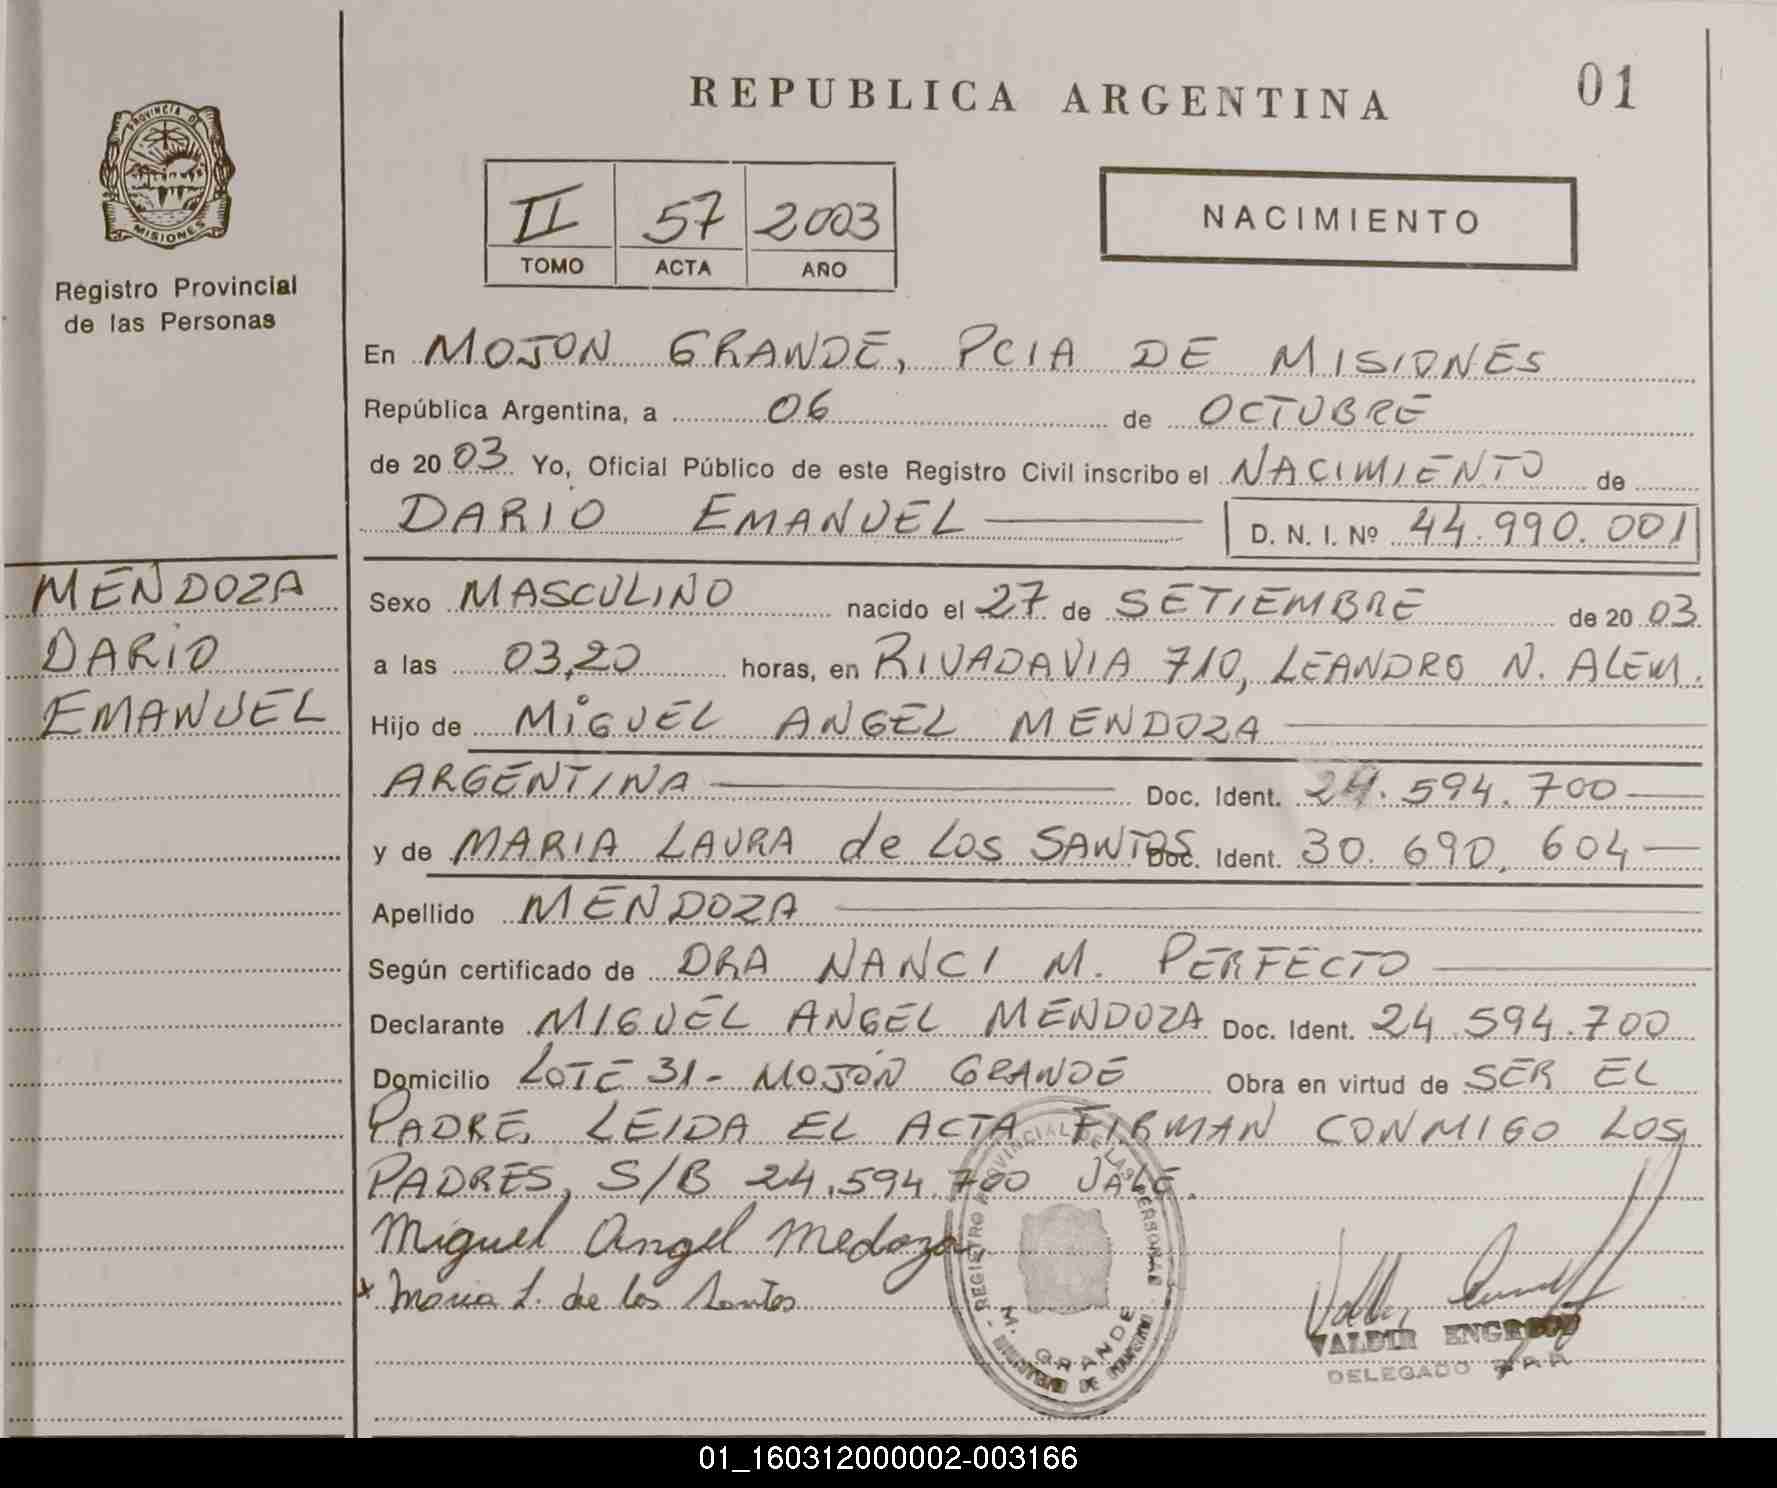 REPUBLICA ARGENTINA
01
PROVINCIA DE
MISIONES
Registro Provincial
de las Personas
II 57 2003
TOMO ACTA AÑO
NACIMIENTO
En MOJON GRANDE, PCIA DE MISIONES
República Argentina, a 06 de OCTUBRE
de 2003 Yo, Oficial Público de este Registro Civil inscribo el NACIMIENTO de
DARIO EMANUEL D. N. I. Nº 44.990.001
MENDOZA
DARIO
EMANUEL
Sexo MASCULINO nacido el 27 de SETIEMBRE de 2003
a las 03,20 horas, en RIVADAVIA 710, LEANDRO N. ALEM.
Hijo de MIGUEL ANGEL MENDOZA
ARGENTINA Doc. Ident. 24.594.700
y de MARIA LAURA de LOS SANTOS Doc. Ident. 30.690.604
Apellido MENDOZA
Según certificado de DRA NANCI M. PERFECTO
Declarante MIGUEL ANGEL MENDOZA Doc. Ident. 24.594.700
Domicilio LOTE 31- MOJÓN GRANDE Obra en virtud de SER EL
PADRE. LEIDA EL ACTA FIRMAN CONMIGO LOS
PADRES, S/B 24.594.700 VALE.
Miguel Angel Medoza
Maria L. de los Santos
REGISTRO PROVINCIAL DE LAS PERSONAS
M. GRANDE
VALDIR
DELEGADO
01_160312000002-003166